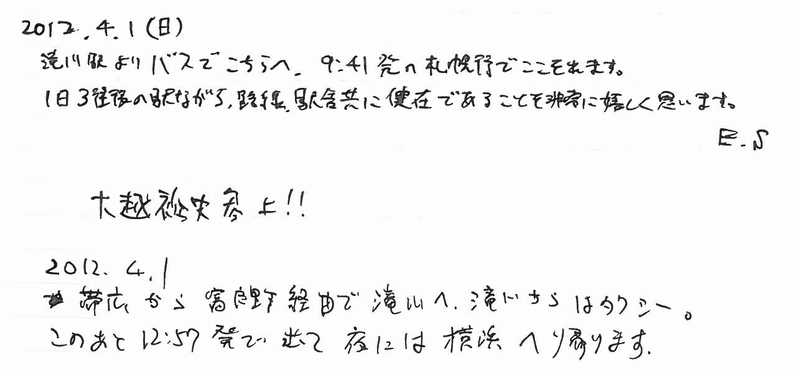 2012.4.1(日)
滝川駅よりバスでこちらへ、9:41発の札幌行でここを出ます。
1日3往復の駅ながら、路線、駅舎共に健在であることを非常に嬉しく思います。
E.S
大越 参上!!
2012.4.1
帯広から富良野経由で滝川へ、滝川からはタクシー。
このあと12:57発で出て夜には横浜へ帰ります。